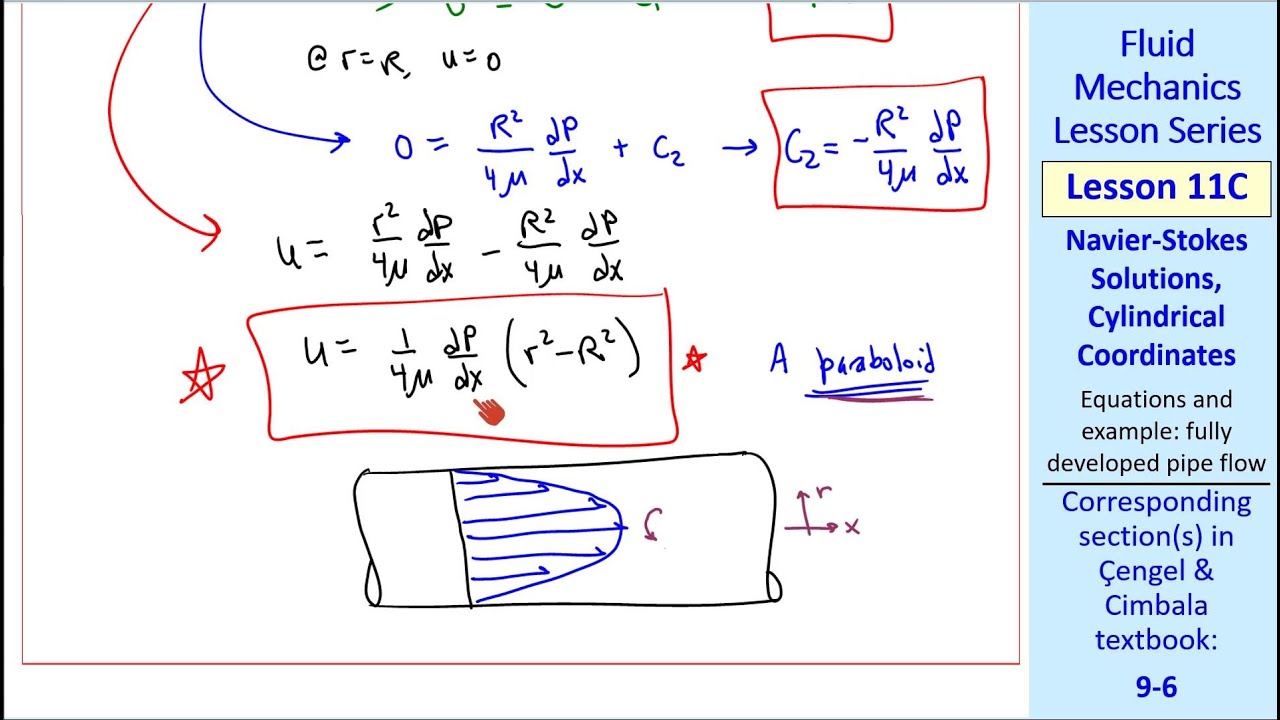 @ r=R, u=0
0 = R²/4μ dP/dx + C₂ → C₂ = -R²/4μ dP/dx
u = r²/4μ dP/dx - R²/4μ dP/dx
u = 1/4μ dP/dx (r²-R²)
A paraboloid
r
x
Fluid
Mechanics
Lesson Series
Lesson 11C
Navier-Stokes
Solutions,
Cylindrical
Coordinates
Equations and
example: fully
developed pipe flow
Corresponding
section(s) in
Çengel &
Cimbala
textbook:
9-6